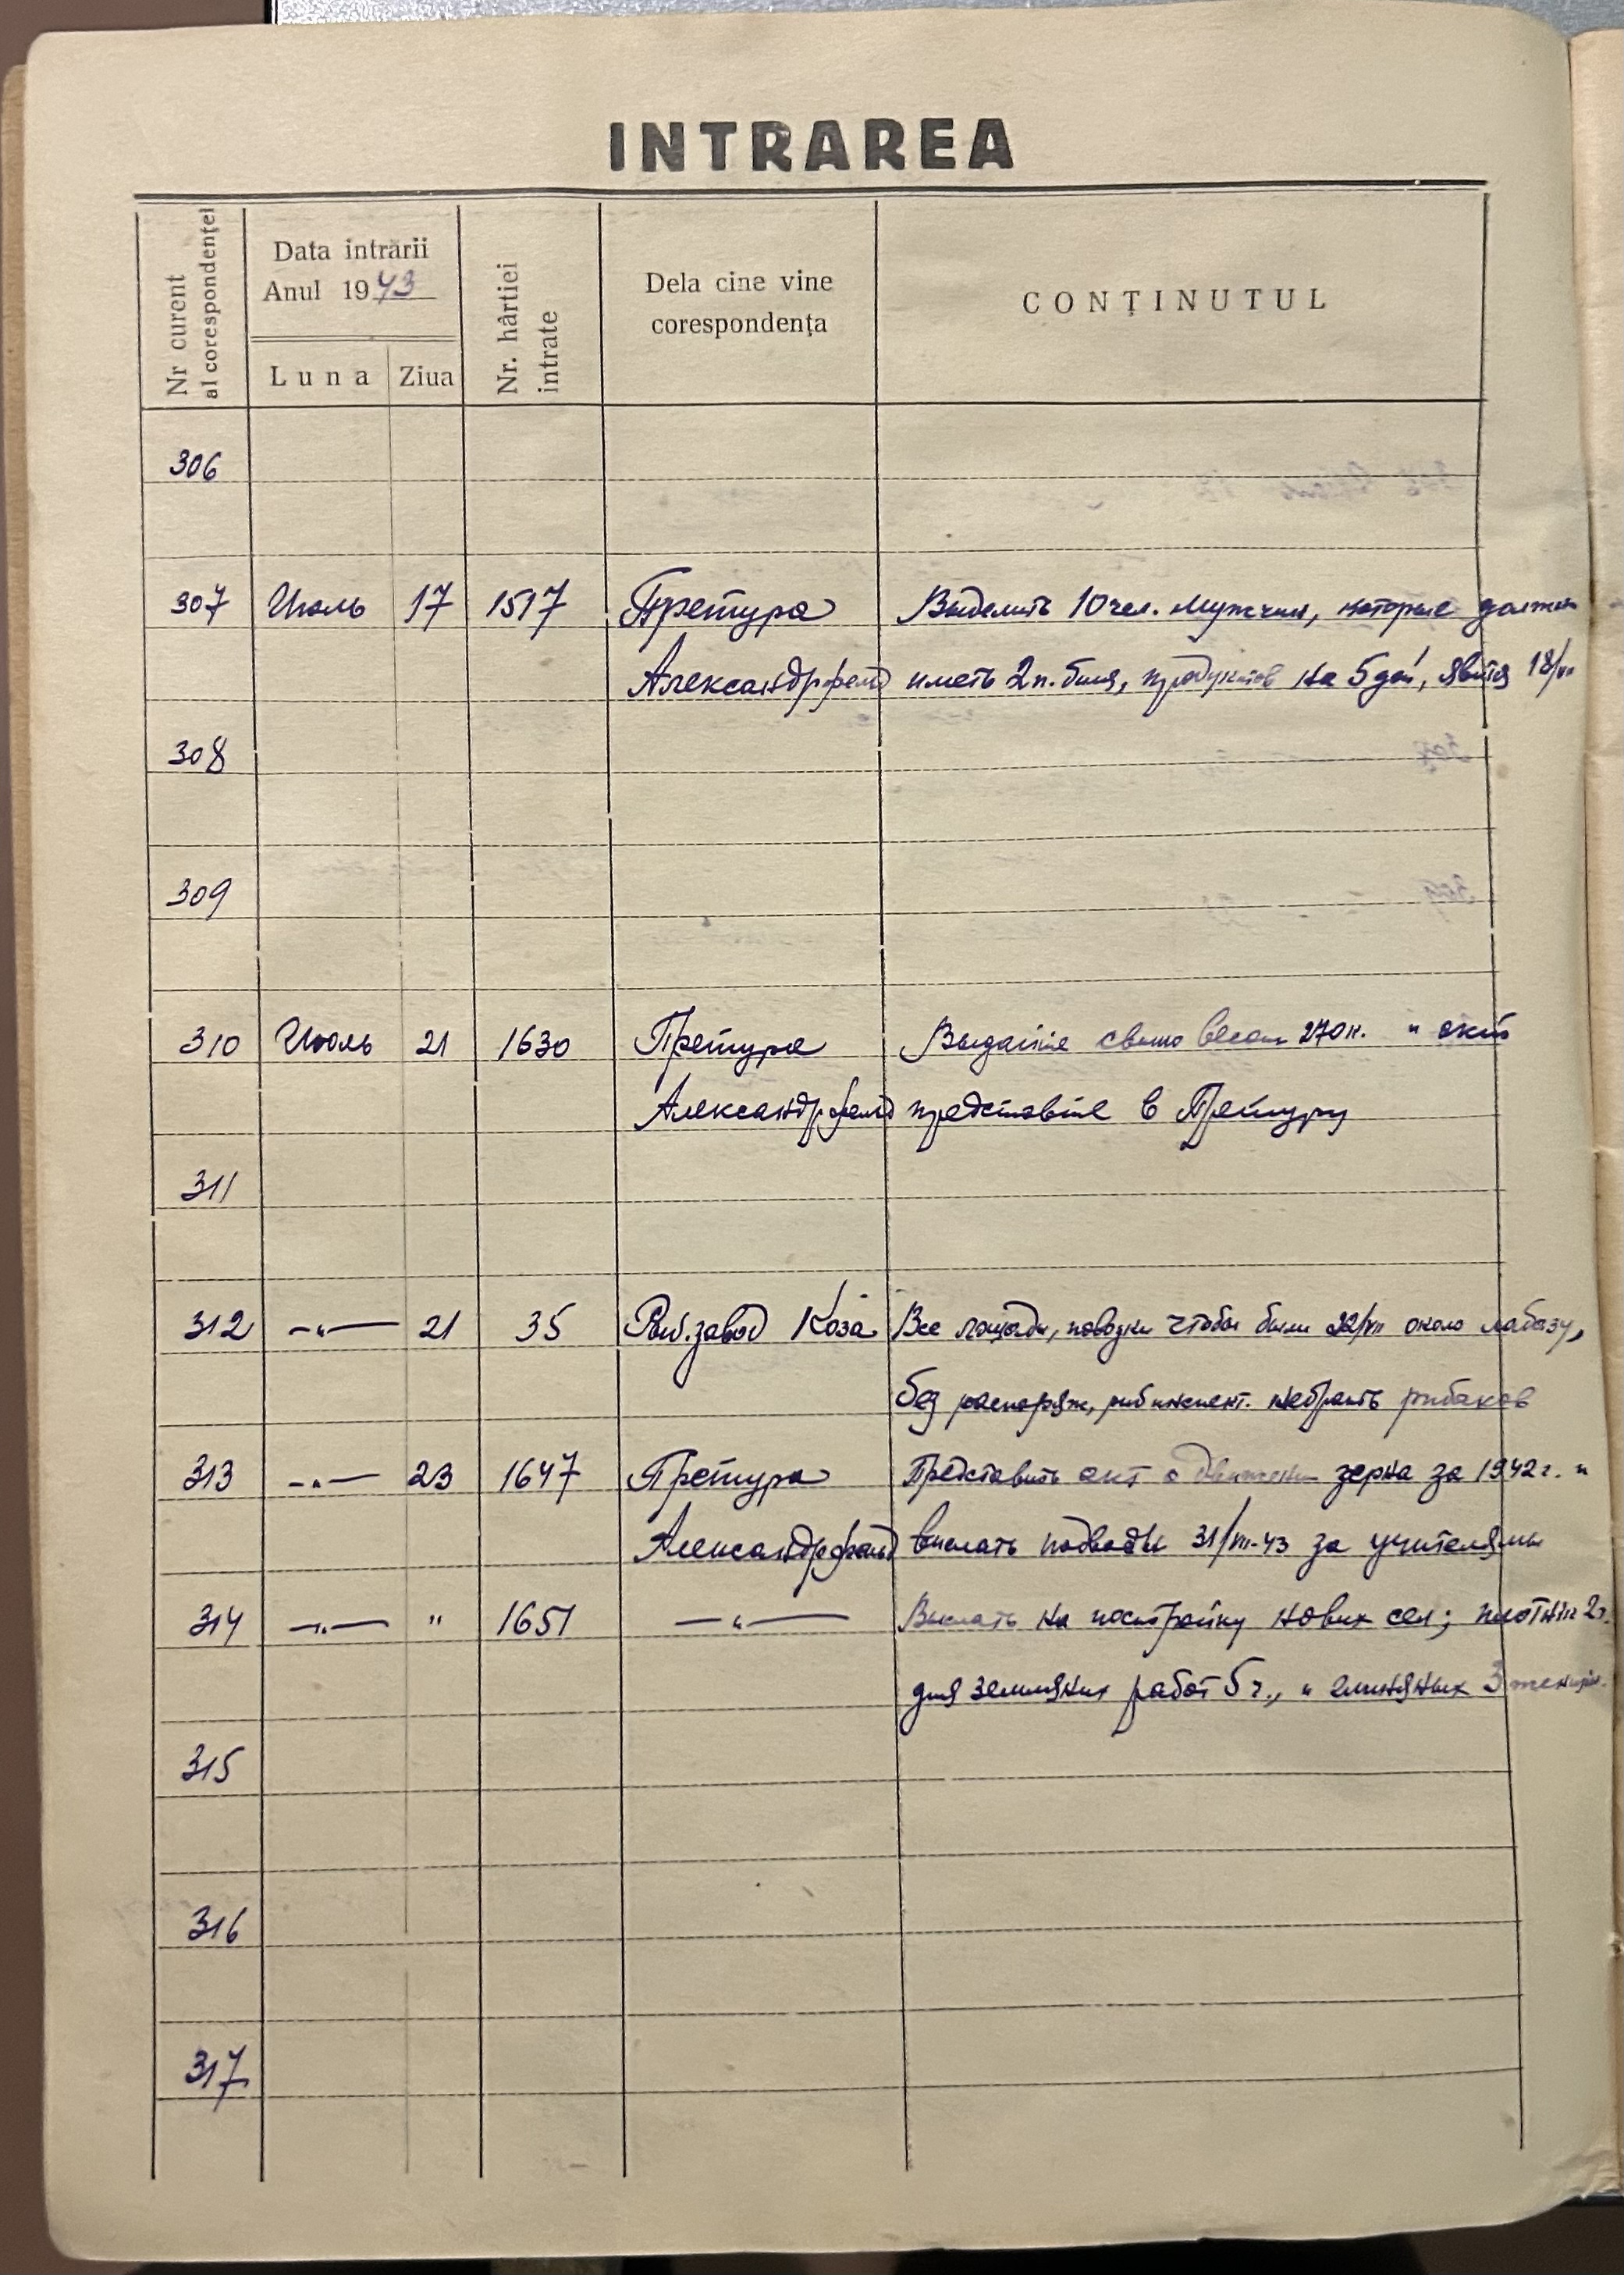 INTRAREA
Nr curent al corespondenței
Data intrării
Anul 1943
Luna Ziua
Nr. hârtiei intrate
Dela cine vine corespondența
CONȚINUTUL
306
307 Июль 17 1517 Претура Выделить 10 чел. мужчин, которые должны
Александрфельд иметь 2 п. белья, продуктов на 5 дней, явится 18/VII
308
309
310 Июль 21 1630 Претура весом 270 к. и акт
Александрфельд представте в Претуру
311
312 —"— 21 35 Рыб.завод Коза Все лошади, чтобы были 22/VII около лабазу,
без распоряж, небрать рибаков
313 —"— 23 1647 Претура Представить акт о движении зерна за 1942 г. и
Александрфельд выслать подводы 31/VII-43 за учителями
314 —"— " 1651 —"— Выслать на постройку новых сел;
для земляных работ 5 ч., и глиняных 3
315
316
317